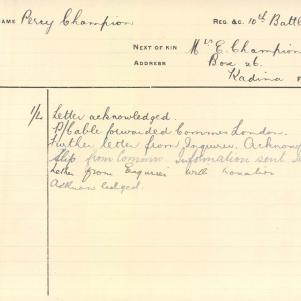 NAME Percy Champion REG. &C. 10th Battl
NEXT OF KIN Mrs E. Champion
ADDRESS Box 26.
Kadina
1/4 Letter acknowledged.
P/Cable forwarded Commr London.
Further letter from Inquirer. Acknow
slip from Commr. Information sent
Letter from Enquirer with donation
Acknowledged.